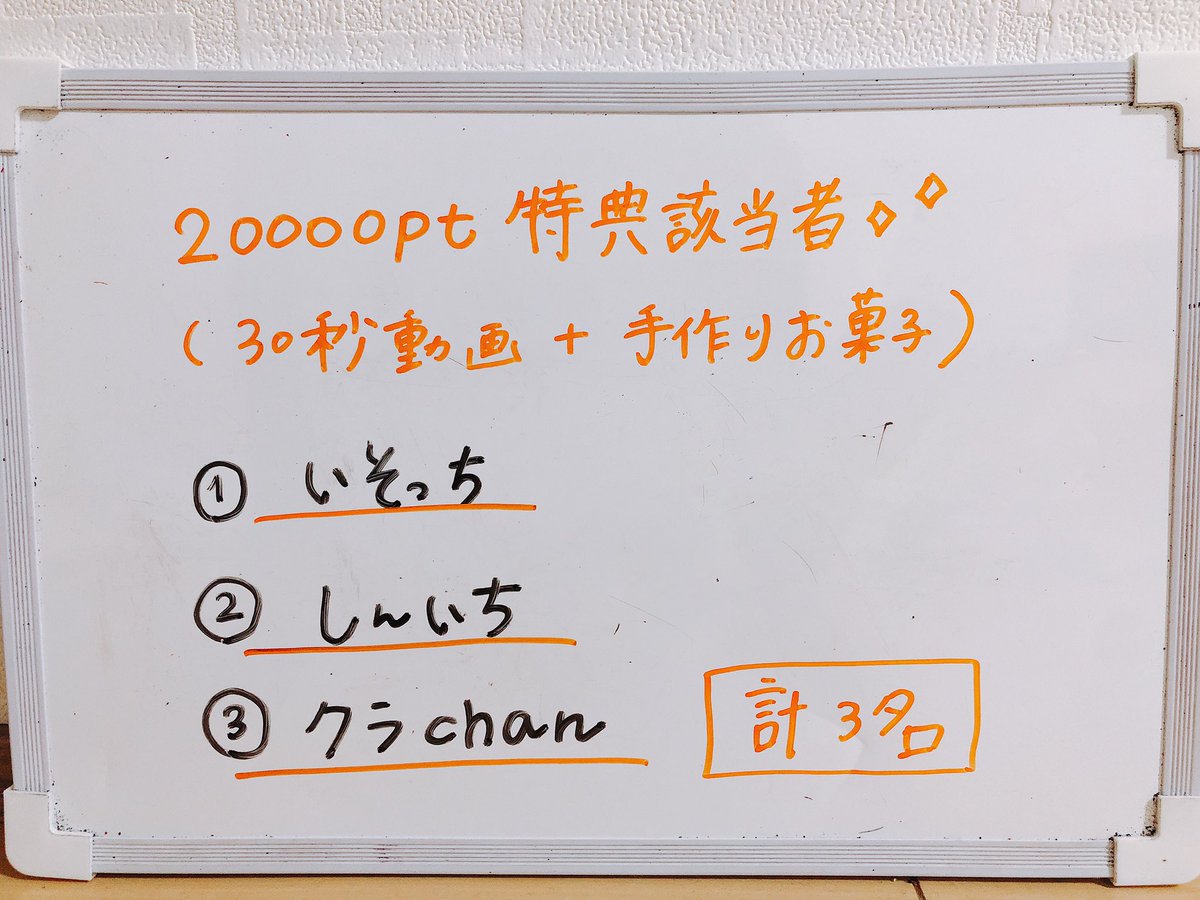 20000pt 特典該当者
(30秒動画 + 手作りお菓子)
① いそっち
② しんいち
③ クラchan
計3名